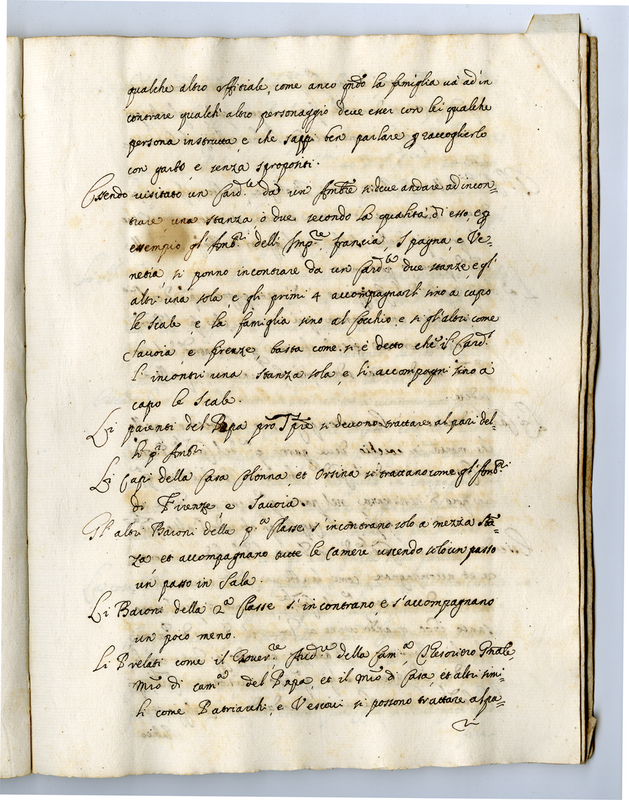 qualche altro offitiale, come anco qndo la famiglia uà ad in
contrare qualch' altro personaggio deue esser con lei qualche
persona instrutta e che sappi ben parlare p raccoglierlo
con garbo e senza spropositi.
Essendo uisitato un Card.le da un Ambre si deue andare ad incon=
trare una stanza ò due secondo la qualità di esso, e p
essempio gl' Amb.ri dell' Imp.re francia, Spagna, e Ve=
netia, si ponno incontrare da un Card.le due stanze, e gl'
altri una sola, e gli primi 4 accompagnarli sino a capo
le scale e la famiglia sino al Cocchio, e si gl' altri come
Sauoia e firenze, basta come si è detto che il Card.l
l' incontri una stanza sola, e li accompagni sino a
capo le scale.
Li parenti del Papa pro Tpre si deuono trattare al pari del=
li p.i Amb.ri
Li Capi della Casa Colonna, et Orsina si trattano come gl' Amb.ri
di Firenze, e Sauoia.
Gl' altri Baroni della p.a Classe s' incontrano solo a mezza sta=
za et accompagnano tutte le Camere uscendo solo un passo
un passo in Sala.
Li Baroni della 2.a Classe s' incontrano e s' accompagnano
un poco meno.
Li Prelati come il Gouer.re Aud.re della Cam.a Thesoriero Gnale,
Mro di cam.a del Papa, et il Mro di Casa et altri simi=
li come Patriarchi, e Vescoui si possono trattare al pa=
ri